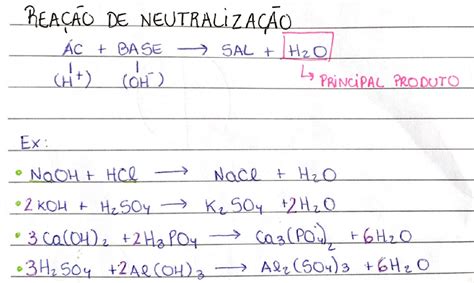 REAÇÃO DE NEUTRALIZAÇÃO
ÁC + BASE → SAL + H2O
(H+) (OH-) ↳ PRINCIPAL PRODUTO
Ex:
• NaOH + HCl → NaCl + H2O
• 2KOH + H2SO4 → K2SO4 + 2H2O
• 3Ca(OH)2 + 2H3PO4 → Ca3(PO4)2 + 6H2O
• 3H2SO4 + 2Al(OH)3 → Al2(SO4)3 + 6H2O